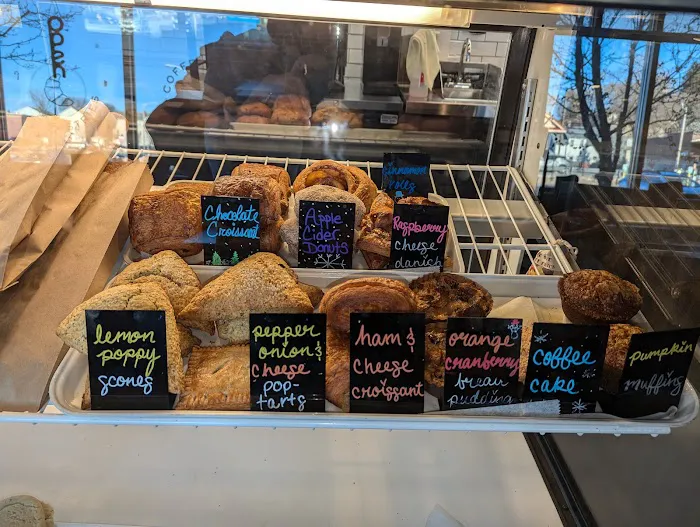 cinnamon
rolls
Chocolate
Croissant
Apple
Cider
Donuts
Raspberry
cheese
danish
lemon
poppy
scones
pepper
onion &
cheese
pop-
tarts
ham &
cheese
croissant
orange
cranberry
bread
pudding
coffee
cake
pumpkin
muffins